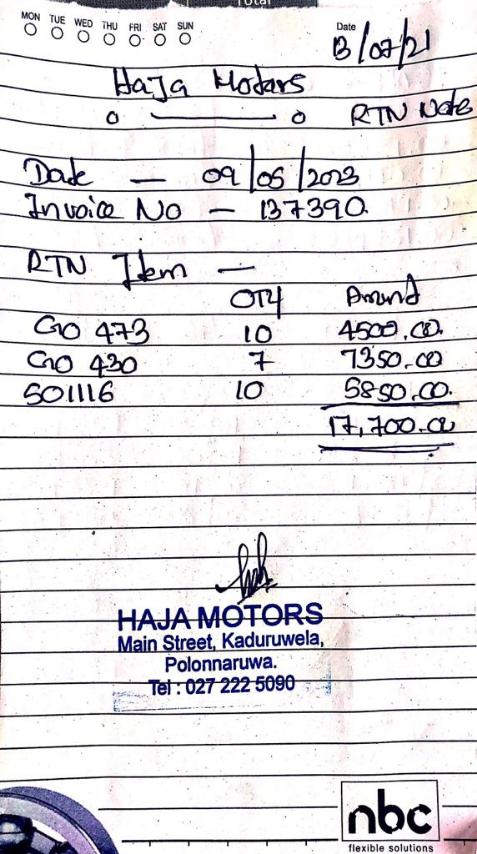 Total
MON TUE WED THU FRI SAT SUN
Date
13/07/21
Haja Motors
RTN Note
Date — 09/05/2023
Invoice No — 137390
RTN Item —
QTY Amount
GIO 473 10 4500.00
GIO 430 7 7350.00
501116 10 5850.00
17,700.00
HAJA MOTORS
Main Street, Kaduruwela,
Polonnaruwa.
Tel : 027 222 5090
nbc
flexible solutions